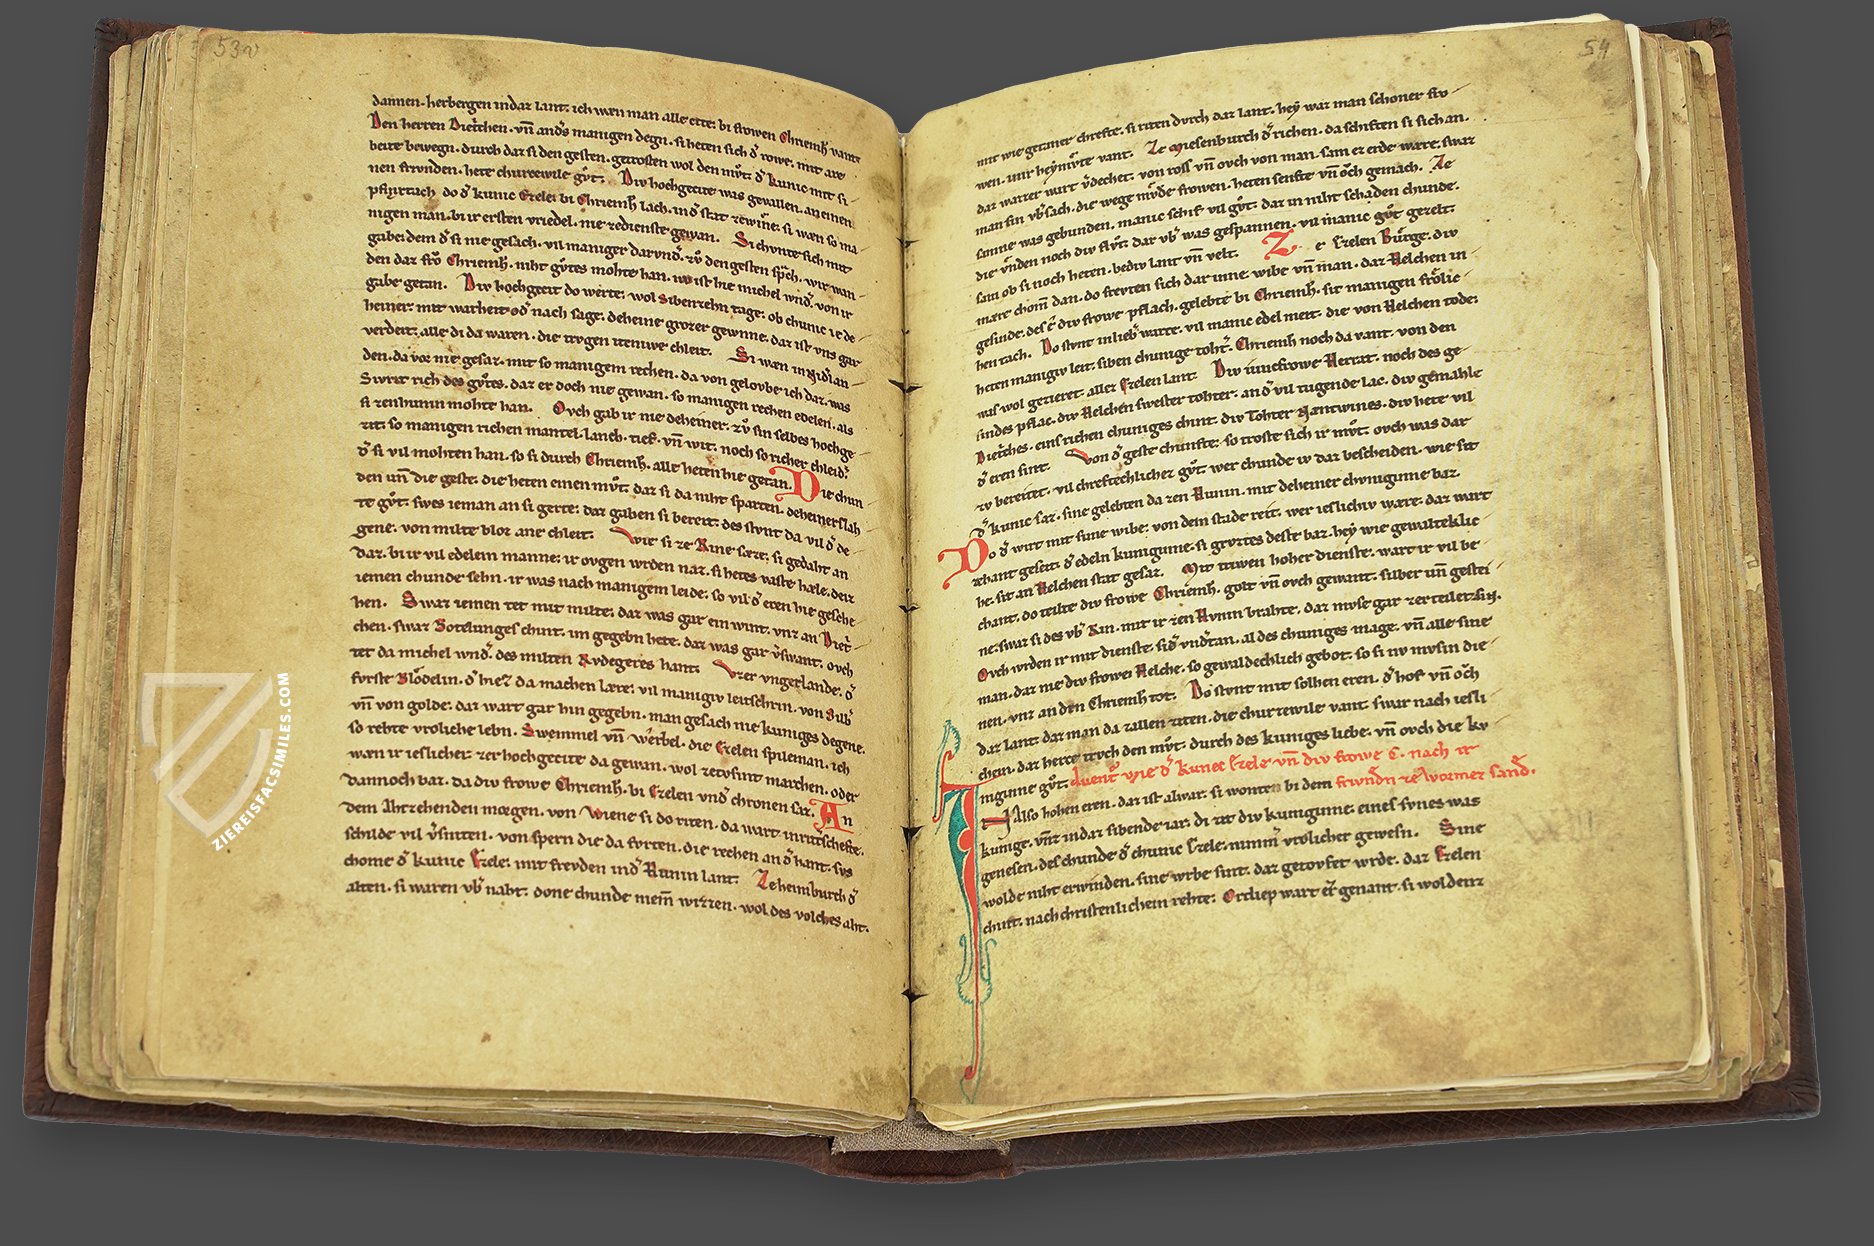 53v
dannen. herbergen indaz lant. ich wæn man alle zite. bi frowen Chriemh vante
Den herren Dietrichen. vñ anders manigen degn. si heten sich der rowe. mit are
beite bewegn. durch daz si den gesten. getrosten wol den mvͦt. der kunic mit si
nen frivnden. hete churcewile gvͦt. Div hochgecite was gevallen. an einen
pfinxtach. do der kunic Ezele. bi Chriemh lach. in der stat ze wine. si wæn so ma
nigen man. bi ir ersten vriedel. nie ze dienste gewan. Si chvnte sich mit
gabe. dem der si nie gesach. vil maniger dar vnder. zv den gesten sprch. wir wan
den daz frô Chriemh. niht gvͦtes mohte han. nv ist hie michel wnder. von ir
gabe getan. Div hochgecit do werte. wol sibenzehn tage. ob chunic ie de
heiner. mit warheit oder nach sage. deheine grozer gewnne. daz ist vns gar
verdeit. alle di da waren. die trvgen iteniwe chleit. Si wæn in Niderlan
den. da vor nie gesaz. mit so manigem rechen. da von gelovbe ich daz. was
Sivrit rich des gvͦtes. daz er doch nie gewan. so manigen rechen edelen. als
si zen hunin mohte han. Ovch gab ir nie deheiner. zv sin selbes hochge
zit. so manigen richen mantel. lanch. tief. vñ wit. noch so richer chleider
der si vil mohten han. so si durch Chriemh. alle heten hie getan. Die chun
den vñ die geste. die heten einen mvͦt. daz si da niht sparten. deheiner slah
te gvͦt. swes ieman an si gerte. daz gaben si bereit. des stvnt da vil der de
gene. von milte bloz ane chleit. Wie si ze Rine sæze. si gedaht an
daz. bi ir vil edelem manne. ir ovgen wrden naz. si hetes vaste hæle. deiz
iemen chunde sehn. ir was nach manigem leide. so vil der eren hie gesche
hen. Swaz iemen tet mit milte. daz was gar ein wint. vnz an Diet
chen. swaz Botelunges chint. im gegebn hete. daz was gar verswant. ovch
tet da michel wnder. des milten Rvdegeres hant. Vzer vngerlande. der
fvrste Blödelin. der hiez da machen lære. vil manigiv leitschrin. von silber
vñ von golde. daz wart gar hin gegebn. man gesach nie kuniges degene.
so rehte vroliche lebn. Swemmel vñ Werbel. die Ezelen spileman. ich
wæn ir ieslicher. zer hochgecite da gewan. wol ze tvsint marchen. oder
dannoch baz. da div frowe Chriemh. bi Ezelen vnder chronen saz. An
dem Ahtzehenden morgen. von Wiene si do riten. da wart in ritscheftе.
schilde vil versniten. von spern die da fvrten. die rechen an der hant. svs
chome der kunic Ezele. mit frevden in der Hunin lant. Ze heimburch der
alten. si waren vber naht. done chunde niemen wizzen. wol des volches aht.
54
mit wie getaner chrefte. si riten dvrch daz lant. hey waz man schoner fro
wen. mir heymvͦte vant. Ze Miesenburch der richen. da schiften si sich an.
daz wazzer wart verdechet. von ross vñ ovch von man. sam ez erde wære. swaz
man sin vber sach. die wege mvͤde frowen. heten senfte vñ och gemach. Ze
samne was gebunden. manic schif vil gvͦt. daz in niht schaden chunde.
die vnden noch div flvͦt. dar vber was gespannen. vil manic gvͦt gezelt.
sam ob si noch heten. bediv lant vñ velt. Ze Ezelen Burge. div
mære chom dan. do frevten sich dar inne. wibe vñ man. daz Helchen in
gesinde. des e div frowe pflach. gelebte bi Chriemh. sit manigen frölic
hen tach. Do stvnt in lieber warte. vil manic edel meit. die von Helchen tode.
heten manigiv leit. siben chunige tohter. Chriemh noch da vant. von den
was wol gezieret. aller Ezelen lant. Div iuncfrowe Herrat. noch des ge
sindes pflac. div Helchen swester tohter. an der vil tugende lac. div gemahle
Dietriches. eins richen chuniges chint. div tohter Nantwines. div hete vil
der eren sint. Von der geste chunfte. so troste sich ir mvͦt. ovch was dar
zv bereitet. vil chreftechlicher gvͦt. wer chunde iv daz bescheiden. wie sit
der kunic saz. sine gelebten da zen Hunin. mit deheiner chvniginne baz.
Do der wirt mit sime wibe. von dem stade reit. wer ieslichiv wære. daz wart
zehant geseit. der edeln kuniginne. si grvztes deste baz. hey wie gewalteklic
he. sit an Helchen stat gesaz. Mit triwen hoher dienste. wart ir vil be
chant. do teilte div frowe Chriemh. golt vñ ovch gewant. silber vñ gestei
ne. swaz si des vber Rin. mit ir zen Hunin brahte. daz mvse gar zerteilet sin.
Ovch wrden ir mit dienste. sider vndertan. al des chuniges mage. vñ alle sine
man. daz nie div frowe Helche. so gewaldechlich gebot. so si nv mvsin die
nen. vnz an den Chriemh tot. Do stvnt mit solhen eren. der hof vñ öch
daz lant. daz man da zallen ziten. die churzewile vant. swar nach iesli
chem. daz herze trvch den mvͦt. durch des kuniges liebe. vñ ovch die kv
niginne gvͦt. Auent wie der kunec Ezele vñ div frowe C. nach ir
frivnden ze Wormez sand.
Also hohen eren. daz ist alwar. si wonten bi dem
kunige. vnz in daz sibende iar. di zit div kuniginne. eines svnes was
genesen. des chunde der chunic Ezele. nimmer vrölicher gewesn. Sine
wolde niht erwinden. sine wrbe sint. daz getovfet wrde. daz Ezelen
chint. nach christenlichem rehte. Ortliep wart er genant. si woldenz
ZIEREISFACSIMILES.COM